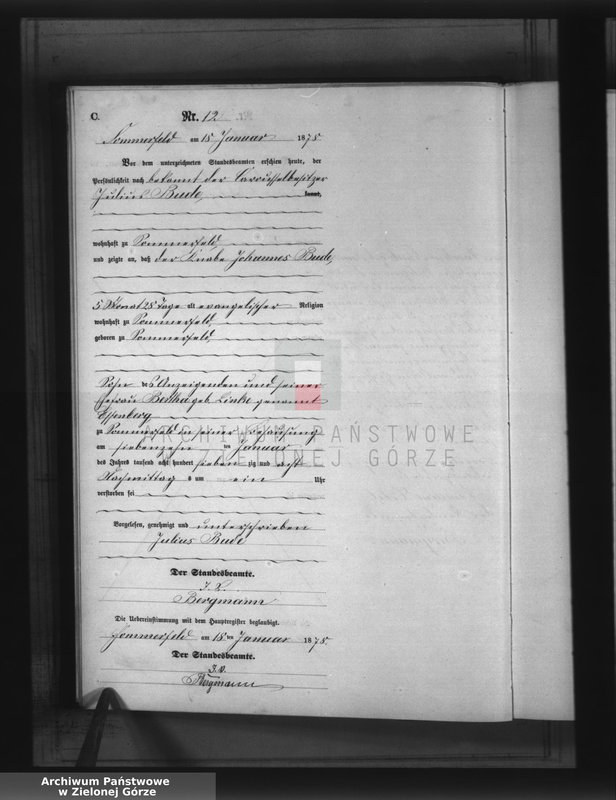 C. Nr. 12.
Sommerfeld am 18 Januar 1878.
Vor dem unterzeichneten Standesbeamten erschien heute, der
Persönlichkeit nach bekannt der Carousselbesitzer
Julius Bude,
kannt,
wohnhaft zu Sommerfeld,
und zeigte an, daß der Knabe Johannes Bude,
5 Monat 25 Tage alt evangelischer Religion
wohnhaft zu Sommerfeld,
geboren zu Sommerfeld,
Sohn des Anzeigenden und seiner
Ehefrau geb. Linke genannt
zu Sommerfeld in seiner Behausung
am siebenzehn ten Januar
des Jahres tausend acht hundert sieben zig und acht
Nachmittag s um ein Uhr
verstorben sei
Vorgelesen, genehmigt und unterschrieben
Julius Bude
Der Standesbeamte.
Bergmann
Die Uebereinstimmung mit dem Hauptregister beglaubigt.
Sommerfeld am 18 ten Januar 1878.
Der Standesbeamte.
J. V.
Bergmann
ARCHIWUM PAŃSTWOWE
W ZIELONEJ GÓRZE
Archiwum Państwowe
w Zielonej Górze